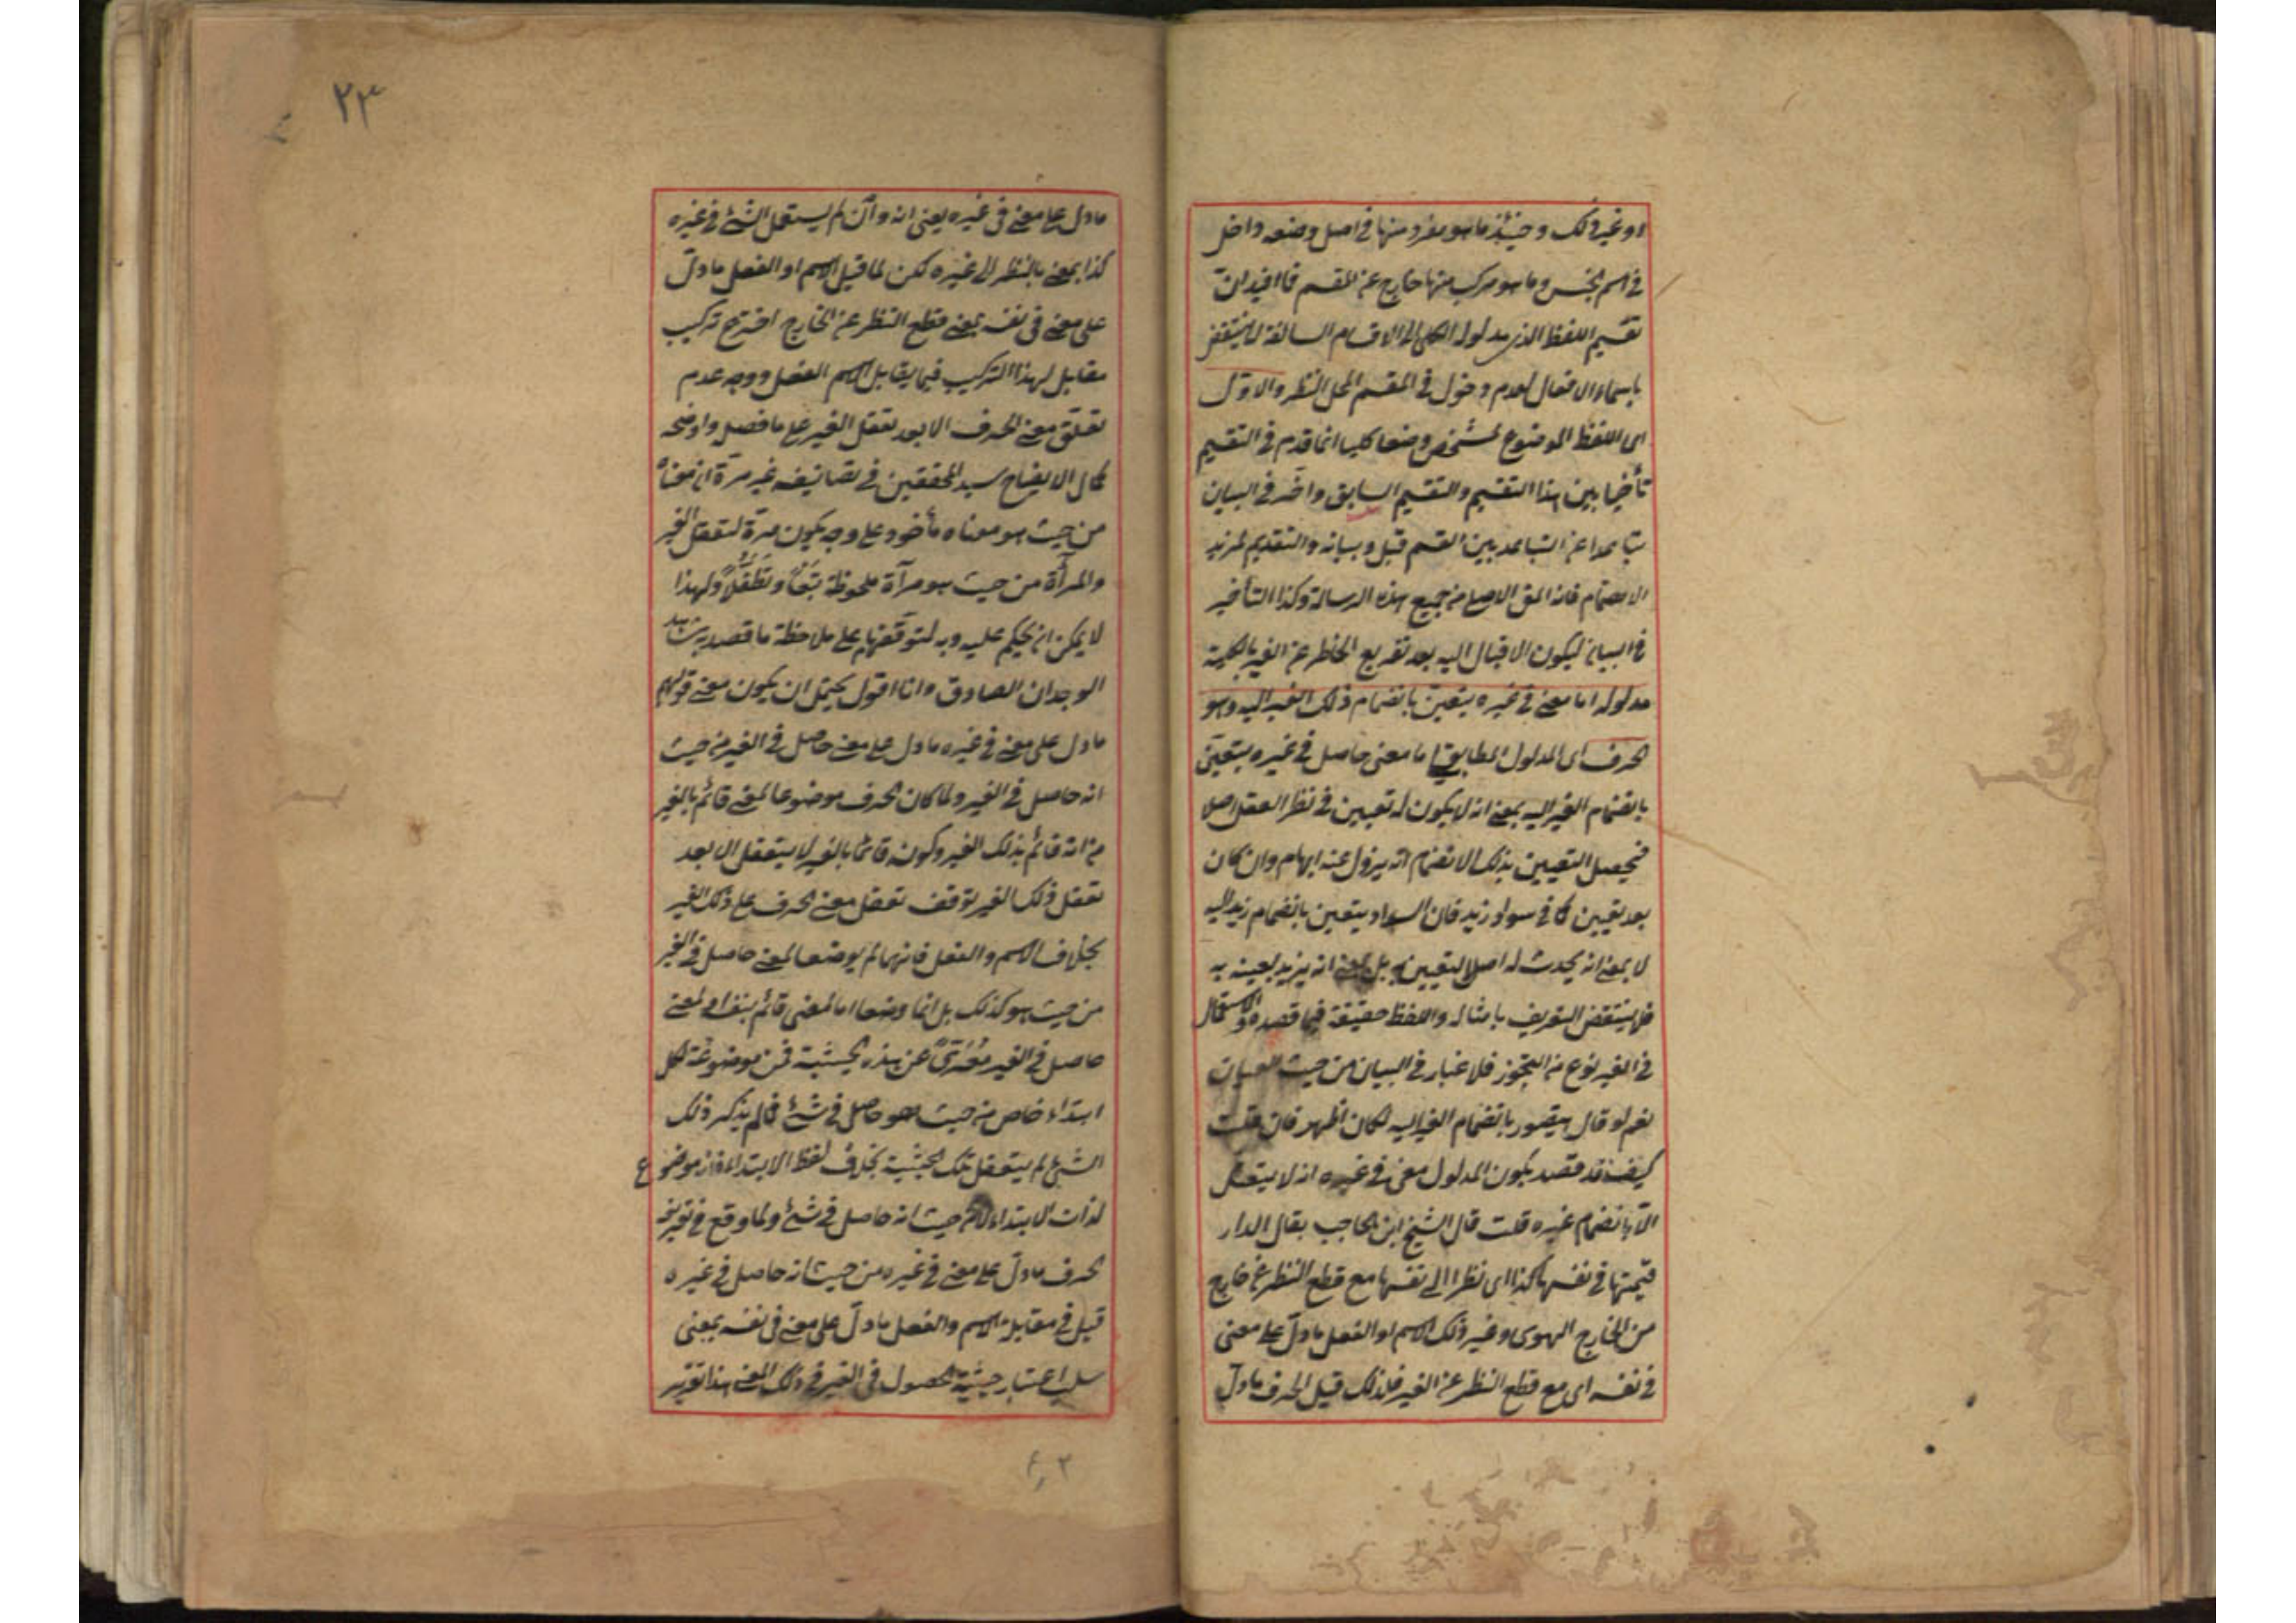 او غير ذلك وحينئذ ما هو مفرد منها في اصل وضعه داخل
في اسم الجنس وما هو مركب منها خارج عن المقسم فما افيد ان
تقسيم اللفظ الذي مدلوله الكلي الى الاقسام السالفة
باسماء الافعال لعدم دخول في المقسم لمحل النظر والاول
اى اللفظ الموضوع لمشخص وضعا كليا انما قدم في التقسيم
بين هذا التقسيم والتقسيم السابق واخر في البيان
عن التباعد بين القسم قبل وبيانه والتقديم لمزيد
الاهتمام فانه المق الاصلي من جميع هذه الرسالة وكذا التأخير
في البيان ليكون الاقبال اليه بعد تفريع الخاطر عن الغير بالكلية
مدلوله اما معنى في غيره يتعين بانضمام ذلك الغير اليه وهو
الحرف اى المدلول المطابقي اما معنى حاصل في غيره يتعين
بانضمام الغير اليه بمعنى انه لا يكون له تعيين في نظر العقل اصلا
فيحصل التعيين بذلك الانضمام انه يزول عنه ابهام وان كان
بعد تعيين كما في سواد زيد فان السواد يتعين بانضمام زيد اليه
لا بمعنى انه يحدث له اصل التعيين به بل بمعنى انه يزيد تعينه به
فلا ينتقض التعريف بامثاله واللفظ حقيقة فيما قصده والاستعمال
في الغير نوع من التجوز فلا غبار في البيان من حيث
نعم لو قال يتصور بانضمام الغير اليه لكان اظهر فان قلت
كيف قد قصد بكون المدلول معنى في غيره انه لا يتعقل
الا بانضمام غيره قلت قال الشيخ ابن الحاجب يقال الدار
قيمتها في نفسها كذا اى نظرا الى نفسها مع قطع النظر عن خارج
من الخارج الهوى وغير ذلك الاسم او الفعل ما دل على معنى
في نفسه اى مع قطع النظر عن الغير فلذلك قيل الحرف ما دل
٢٣
ما دل على معنى في غيره يعنى انه وان لم يستعمل الشئ في غيره
كذا بمعنى بالنظر الى غيره لكن لما قيل الاسم او الفعل ما دل
على معنى في نفسه بمعنى قطع النظر عن الخارج اخترع تركيب
مقابل لهذا التركيب فيما يقابل الاسم الفعل ووجه عدم
تعلق معنى الحرف الا بعد تعقل الغير على ما فصل واوضحه
كمال الايضاح سيد المحققين في تصانيفه غير مرة ان معناه
من حيث هو معناه مأخوذ على وجه يكون مرآة لتعقل الغير
والمرآة من حيث هو مرآة ملحوظة تبعا وتطفلا ولهذا
لا يمكن ان يحكم عليه وبه لتوقفهما على ملاحظة ما قصد به
الوجدان الصادق وانا اقول يحتمل ان يكون معنى قولهم
ما دل على معنى في غيره ما دل على معنى حاصل في الغير من حيث
انه حاصل في الغير ولما كان الحرف موضوعا لمعنى قائم بالغير
من انه قائم بذلك الغير وكونه قائما بالغير لا يتعقل الا بعد
تعقل ذلك الغير توقف تعقل معنى الحرف على ذلك الغير
بخلاف الاسم والفعل فانهما لم يوضعا لمعنى حاصل في الغير
من حيث هو كذلك بل انما وضعا اما لمعنى قائم بنفسه او لمعنى
حاصل في الغير معرى عن هذه الحيثية فمن موضوعة لكل
ابتداء خاص من حيث هو حاصل في شئ فما لم يذكر ذلك
الشئ لم يتعقل تلك الحيثية بخلاف لفظ الابتداء فانه موضوع
لذات الابتداء من حيث انه حاصل في شئ ولما وقع في تعريف
الحرف ما دل على معنى في غيره من حيث انه حاصل في غيره
قيل في مقابله الاسم والفعل ما دل على معنى في نفسه بمعنى
سلب اعتبار حيثية الحصول في الغير في ذلك المعنى هذا تقرير